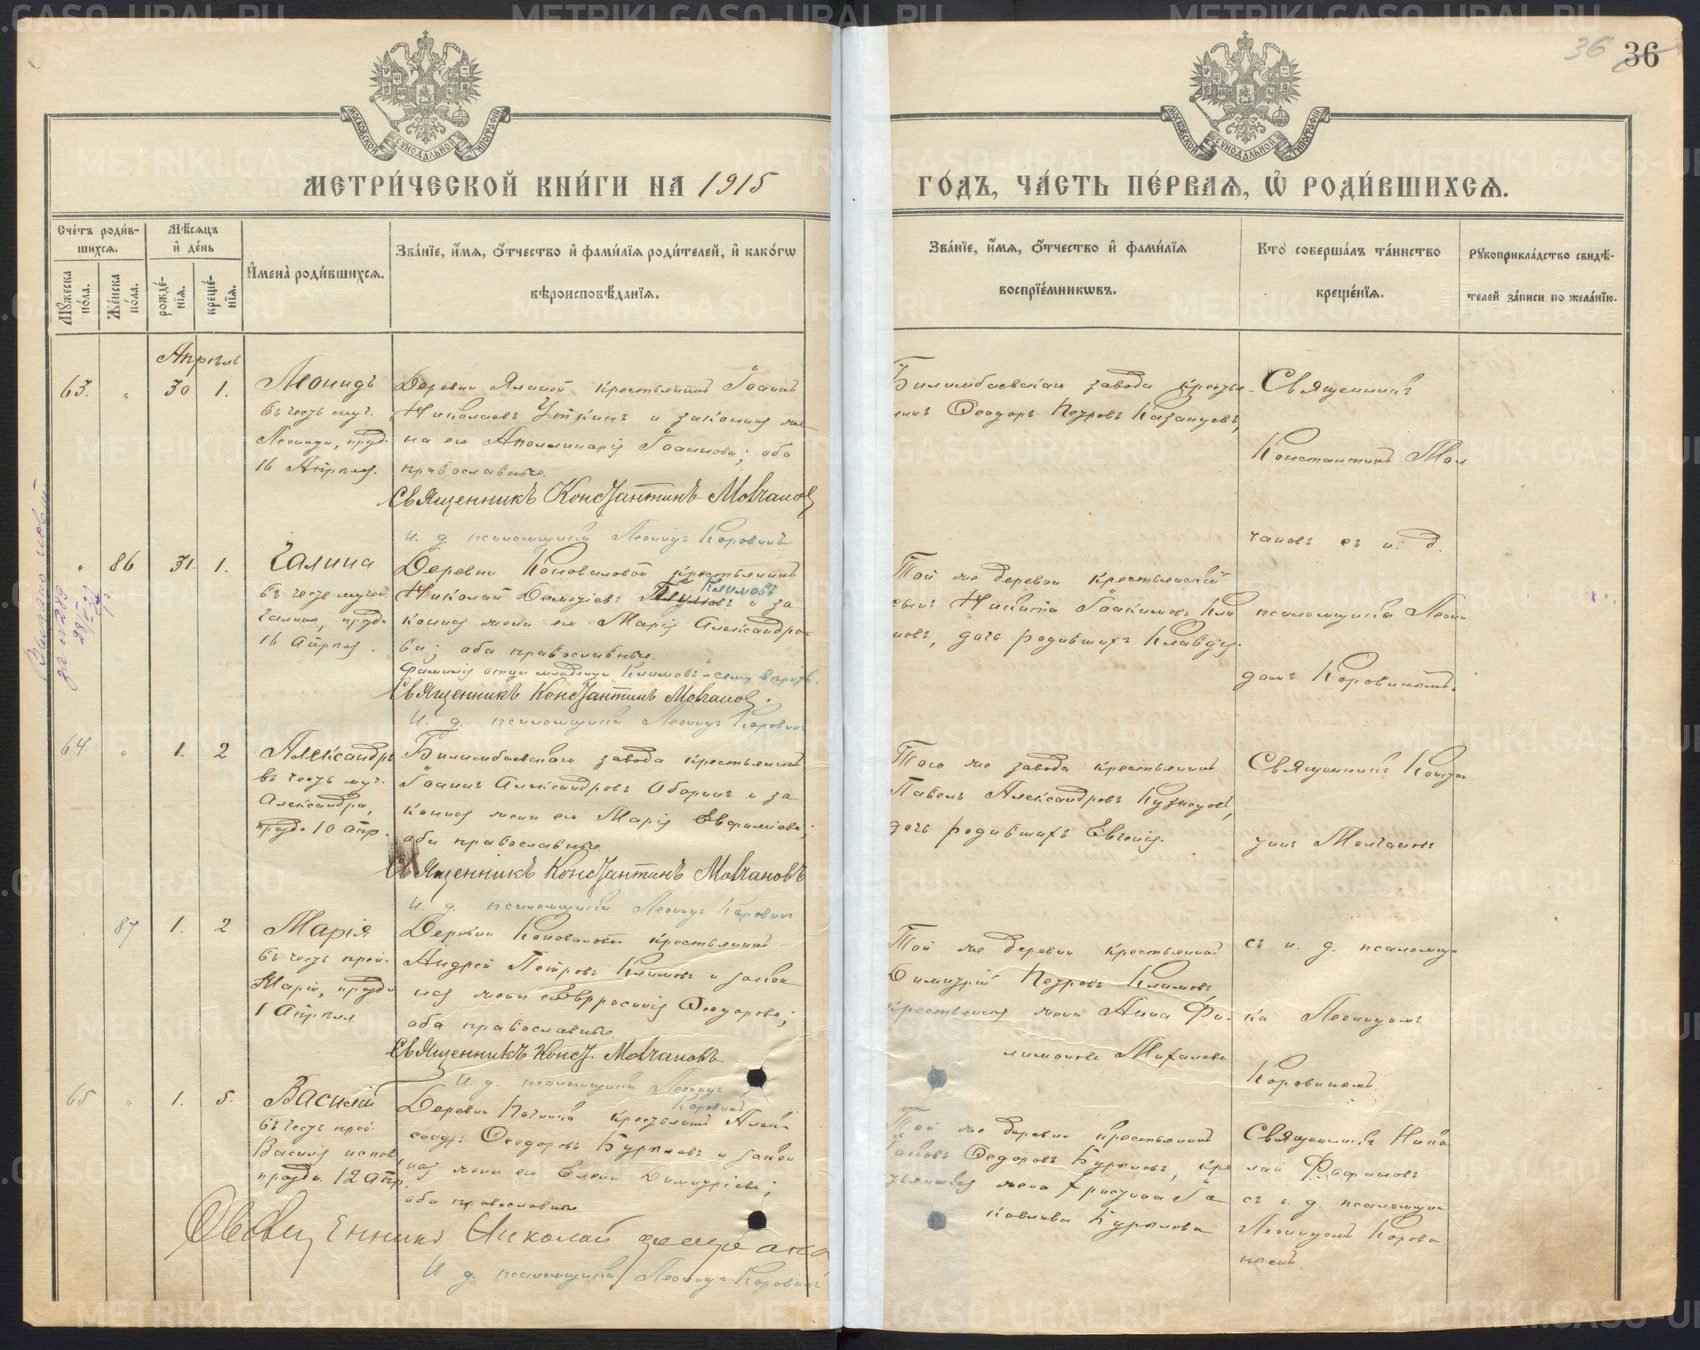 36 36
МЕТРИ́ЧЕСКОЙ КНИ́ГИ НА 1915
ГО́ДЪ, ЧА́СТЬ ПЕ́РВАЯ, Ѡ РОДИ́ВШИХСЯ.
Счётъ роди́вшихся.
Мѣсяцъ и де́нь
Имена̀ роди́вшихся.
Зва́нїе, и́мя, о́тчество и фами́лїя роди́телей, и како́гѡ
вѣроисповѣ́данїя.
Му́жеска по́ла.
Же́нска по́ла.
рожде́нїя.
креще́нїя.
Зва́нїе, и́мя, о́тчество и фами́лїя
воспрїе́мникѡвъ.
Кто̀ соверша́лъ та́инство
креще́нїя.
Рукоприкла́дство свидѣ́-
телей за́писи по жела́нїю.
Апрѣль
63. " 30 1. Леонидъ
въ честь муч.
Леонида, празд.
16 Апрѣля.
Деревни Яланой крестьянинъ Іоаннъ
Николаевъ Уткинъ и законная же-
на его Аполлинарія Іоаннова; оба
православные.
Священникъ Константинъ Молчановъ
И. д. псаломщика Леонидъ Коровинъ
Билимбаевскаго завода крестья-
нинъ Ѳеодоръ Петровъ Казанцевъ,
Священникъ
Константинъ Мол
чановъ съ и. д.
" 86 31. 1. Галина
въ честь мучен.
Галины, празд.
16 Апрѣля.
Деревни Коноваловой крестьянинъ
Николай Дементіевъ Климовъ и за
конная жена его Марія Александро-
ва; оба православные.
Фамилія отца младенца Климовъ
Священникъ Константинъ Молчановъ.
И. д. псаломщика Леонидъ Коровинъ
Той же деревни крестьянскій
сынъ Никита Іоакимовъ Кли
мовъ, дочь родившихъ Клавдія.
псаломщика Леони
домъ Коровинымъ.
64 " 1. 2 Александръ
въ честь муч.
Александра,
празд. 10 апр.
Билимбаевскаго завода крестьянинъ
Іоаннъ Александровъ Оборинъ и за
конная жена его Марія Евфиміева;
оба православные.
Священникъ Константинъ Молчановъ
И. д. псаломщика Леонидъ Коровинъ
Того же завода крестьянинъ
Павелъ Александровъ Кузнецовъ,
дочь родившихъ Евгенія.
Священникъ Констан
тинъ Молчановъ
87 1. 2 Марія
въ честь преп.
Маріи, празд.
1 Апрѣля
Деревни Коноваловой крестьянинъ
Андрей Петровъ Климовъ и закон
ная жена Евфросинія Ѳеодорова;
оба православные
Священникъ Конст. Молчановъ.
И. д. псаломщика Леонидъ
Коровинъ
Той же деревни крестьянинъ
Димитрій Петровъ Климовъ,
крестьянская жена Анна Фи-
лимонова Михалева
съ и. д. псаломщи
ка Леонидомъ
Коровинымъ.
65 " 1. 5. Василій
въ честь преп.
Василія испов.
празд. 12 Апр.
Деревни крестьянинъ Алек-
сандръ Ѳеодоровъ Бурыловъ и закон
ная жена его Елена Димитріева;
оба православные
Священникъ Николай
И. д. псаломщика Леонидъ Коровинъ
Той же деревни крестьянинъ
Ѳедоровъ Бурыловъ, кре
стьянская жена Христина Іа
ковлева Бурылова
Священникъ Нико
лай
съ и. д. псаломщи
Леонидомъ Корови
нымъ.
METRIKI.GASO-URAL.RU